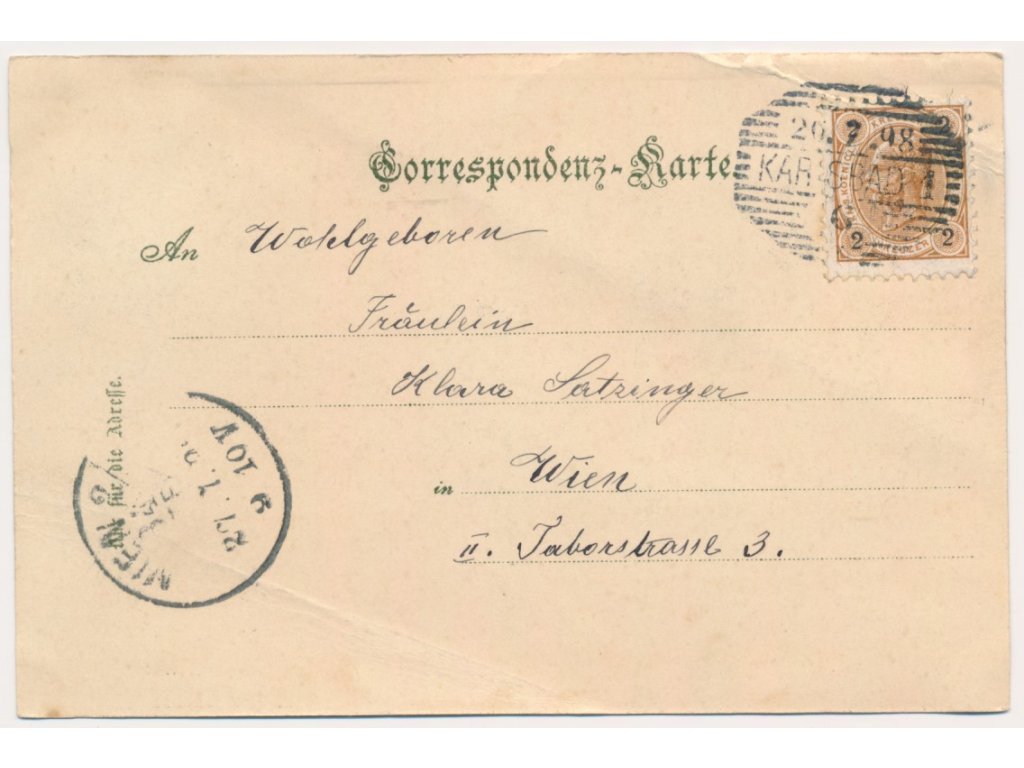 Correspondenz-Karte
26.7.98
KARLSBAD 1
2 2
2 KREUZER 2
An Wohlgeboren
Fräulein
Klara Satzinger
in Wien
II. Taborstrasse 3.
für die Adresse.
WIEN 2
27. 7.
9 10V